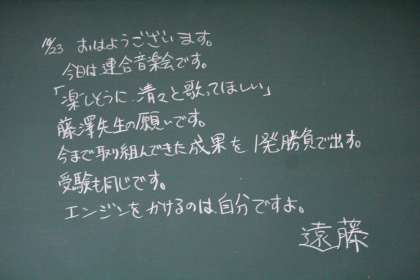 10/23 おはようございます。
今日は連合音楽会です。
「楽しそうに 清々と歌ってほしい」
藤澤先生の願いです。
今まで取り組んできた成果を1発勝負で出す。
受験も同じです。
エンジンをかけるのは自分ですよ。
遠藤